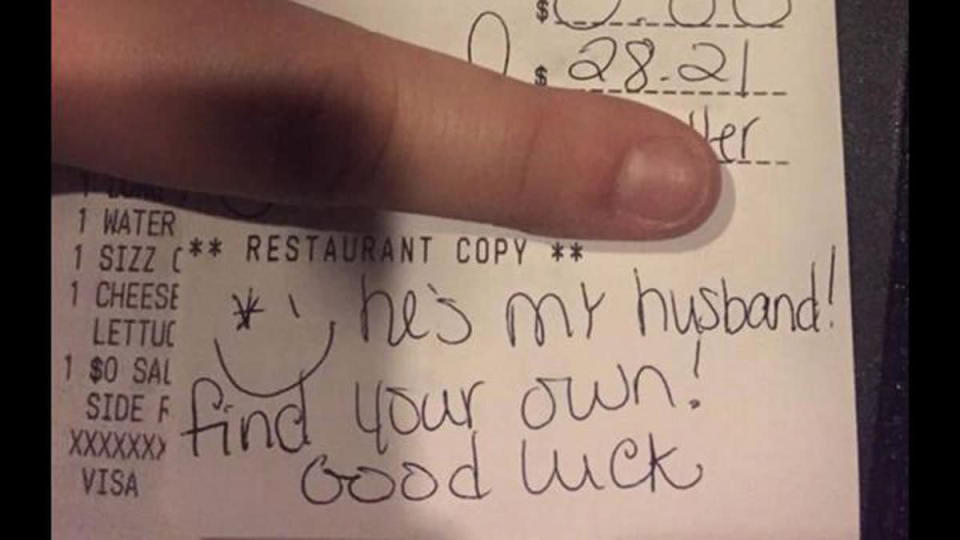 $ 0.00
$ 28.21
1 WATER
1 SIZZ
** RESTAURANT COPY **
1 CHEESE
LETTUC
1 $0 SAL
SIDE
XXXXXXX
VISA
he's my husband!
find your own!
Good luck